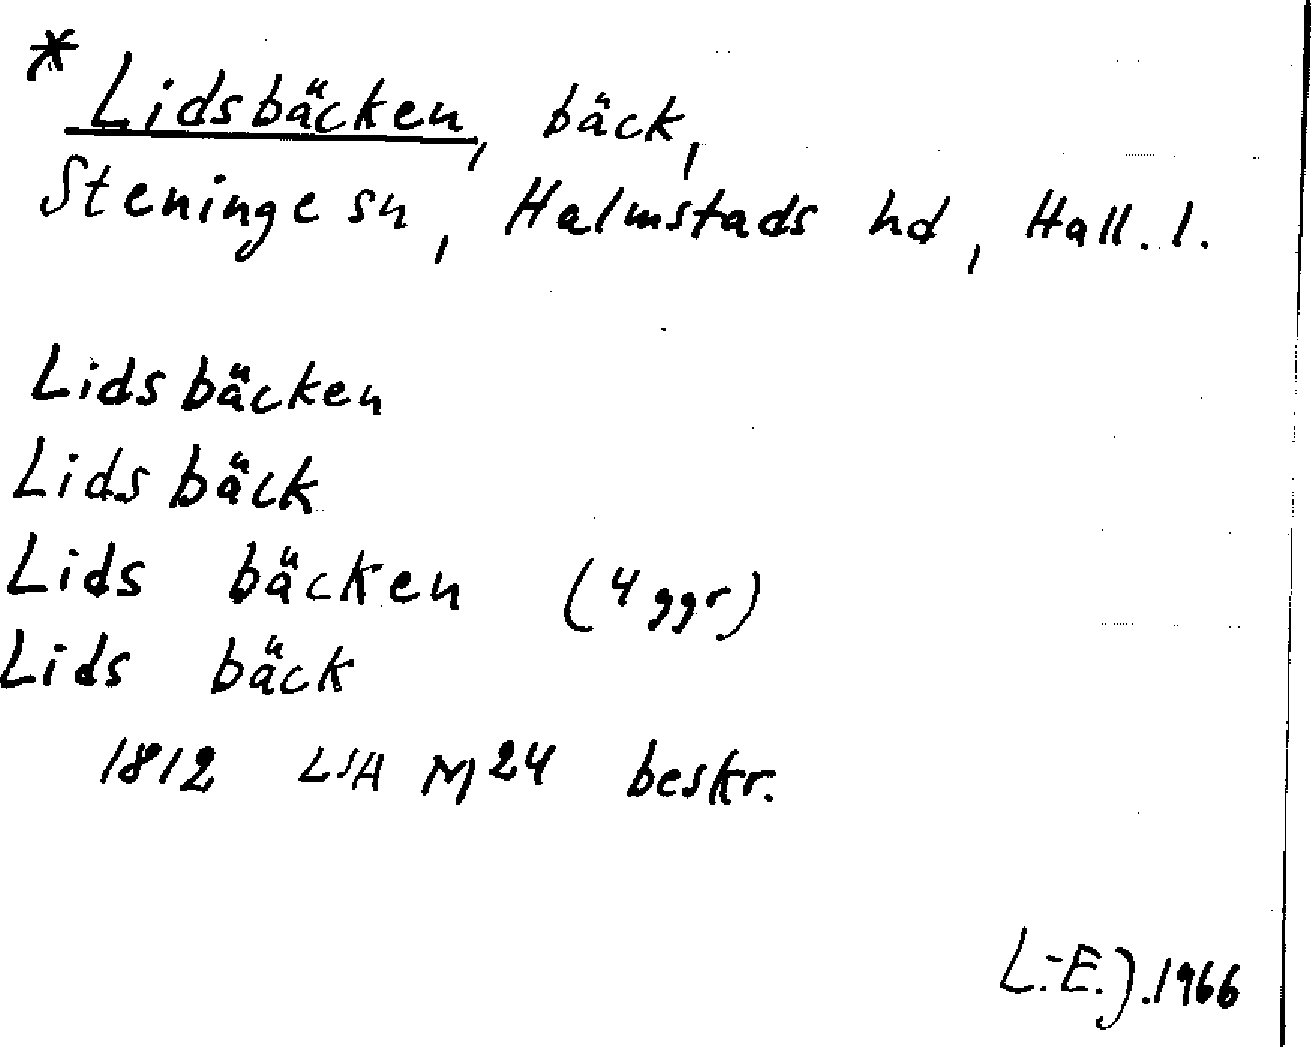 * Lidsbäcken, bäck,
Steninge sn, Halmstads hd, Hall. l.
Lidsbäcken
Lidsbäck
Lids bäcken (4 ggr)
Lids bäck
1812 LSA M24 beskr.
L.-E.J. 1966